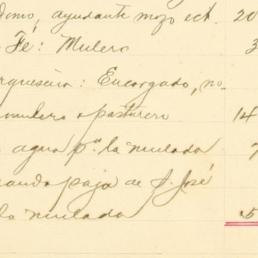 domo, ayudante mozo ect. 20
Fé: Mulero 3
Encargado, no-
mulero o pasturero 14
agua pª la mulada 7
ando paja de S. José
la mulada 5